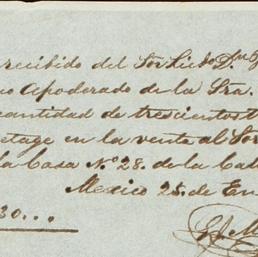 recibido del Sor Licdo Dn
Apoderado de la Sra.
cantidad de trescientos
etage en la venta al Sor
la Casa No. 28. de la Cal
Mexico 25. de En
30...